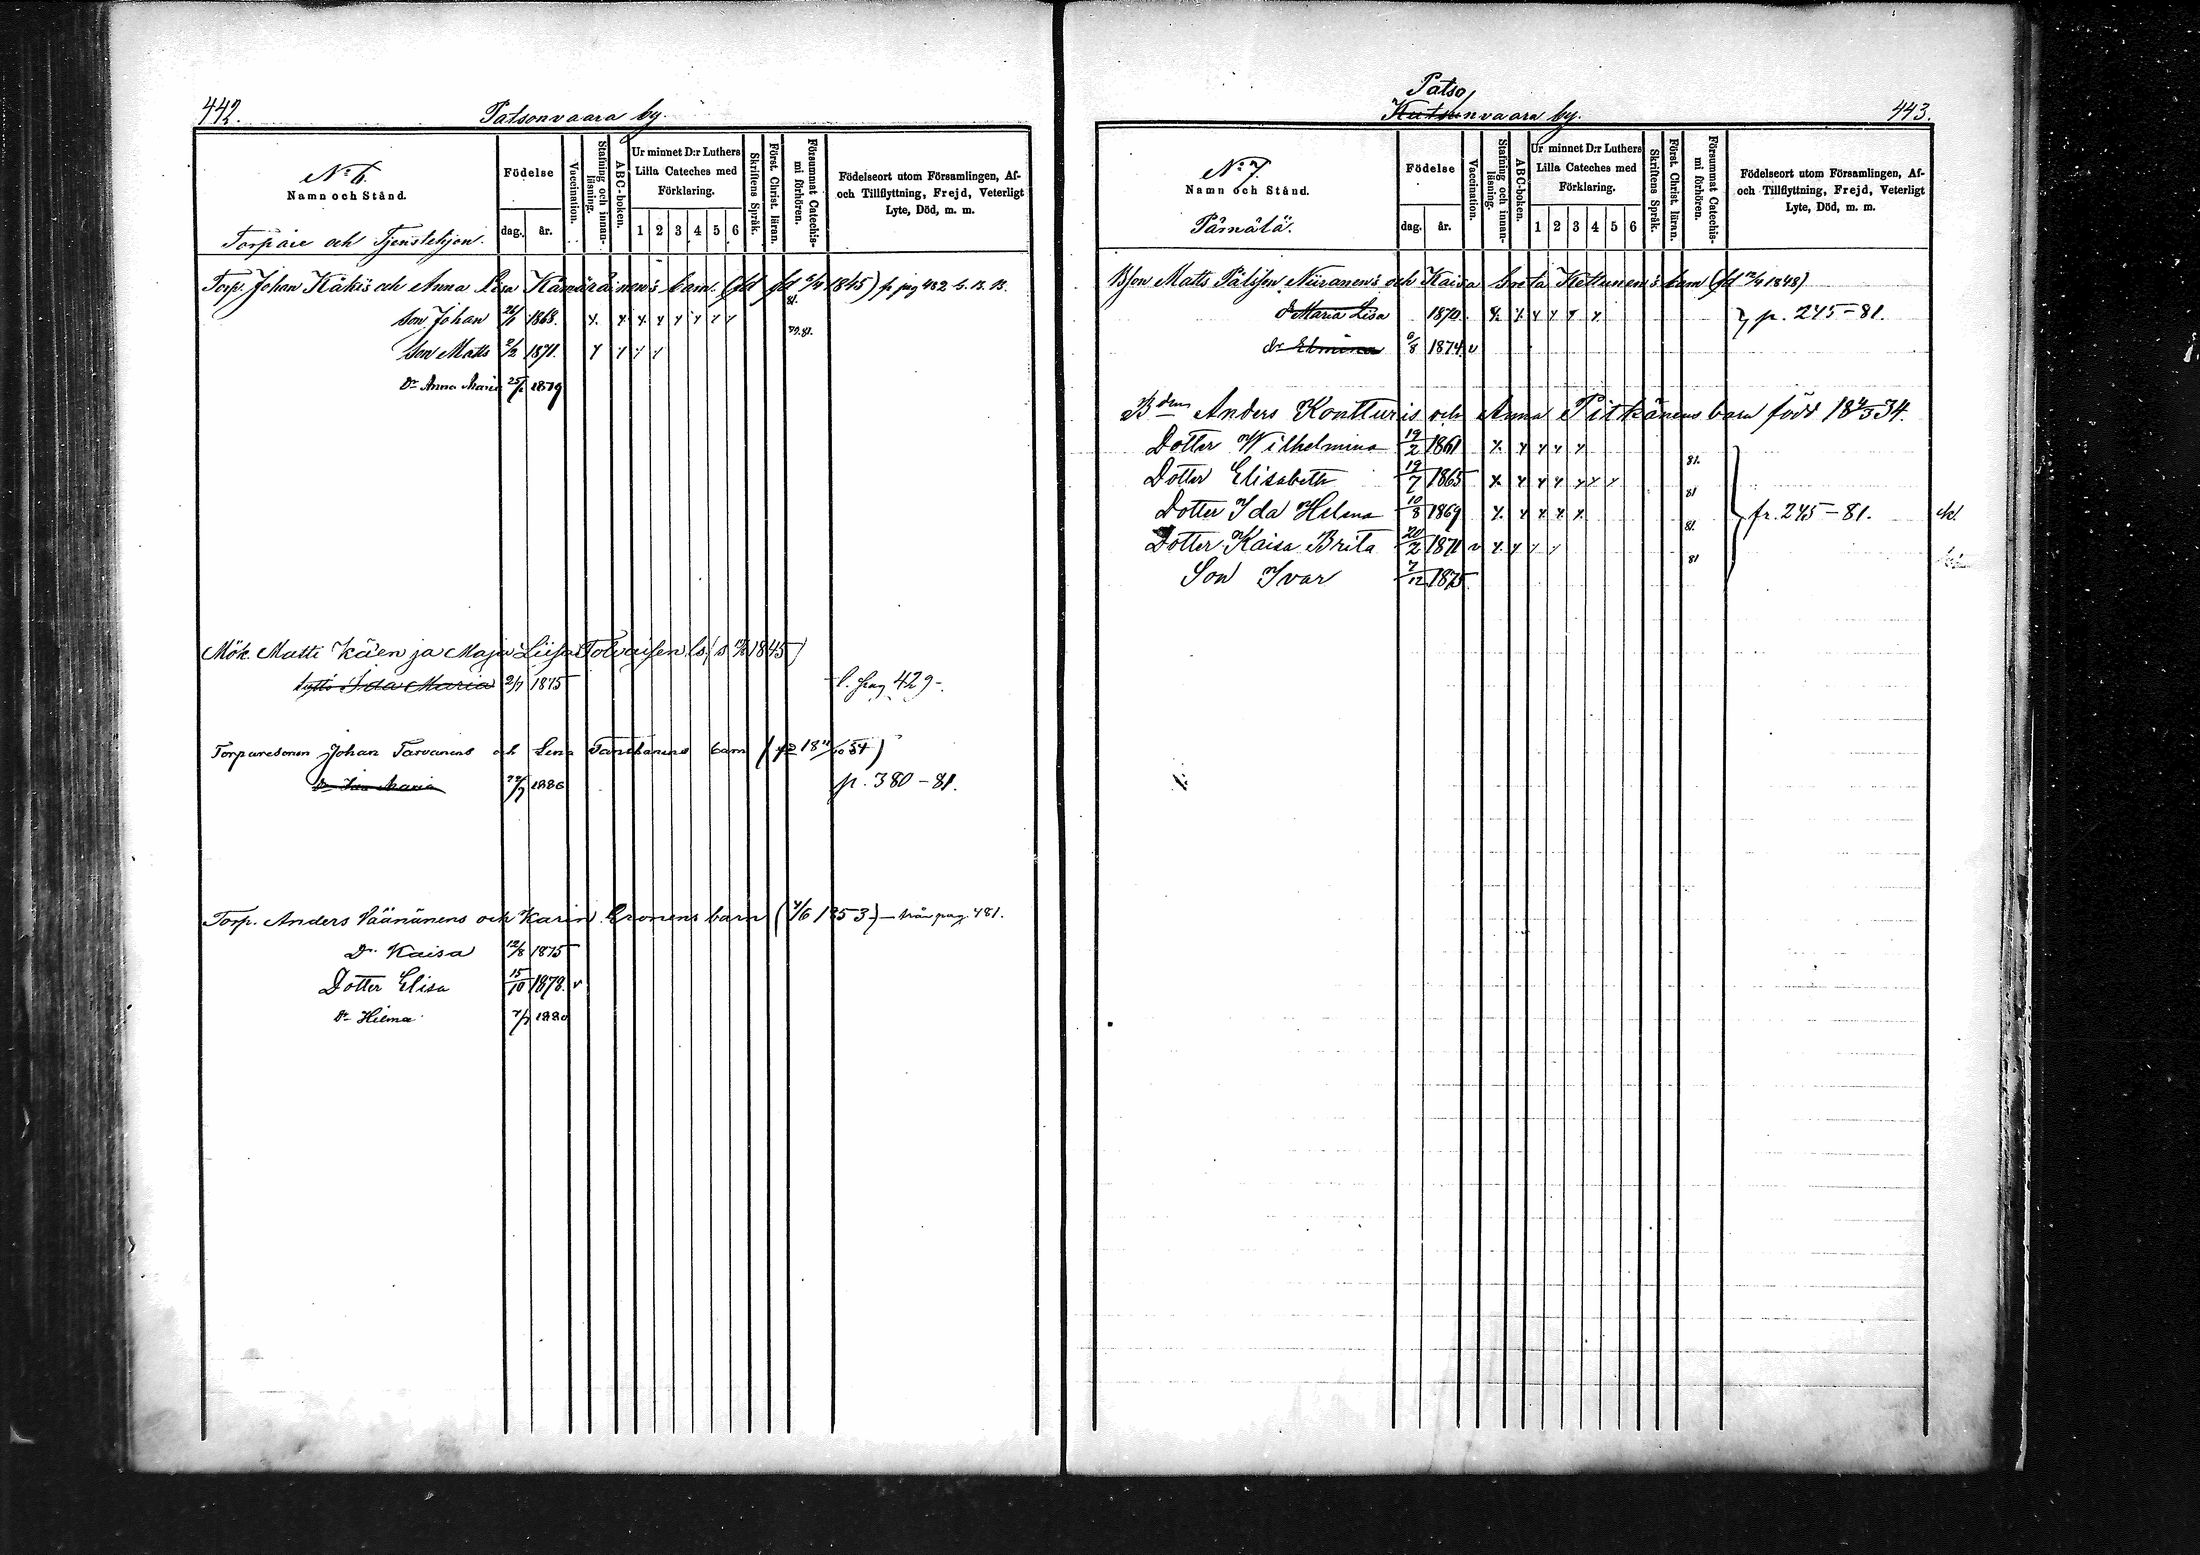 442.
Patsonvaara by.
No 6
Namn och Stånd.
Torpare och Tjenstehjon.
Födelse
dag.
år.
Vaccination.
Stafning och innan-läsning.
ABC-boken.
Ur minnet D:r Luthers
Lilla Cateches med
Förklaring.
1 2 3 4 5 6
Skriftens Språk.
Först. Christ. läran.
Försummat Catechis-mi förhören.
Födelseort utom Församlingen, Af-
och Tillflyttning, Frejd, Veterligt
Lyte, Död, m. m.
Torp. Johan Käkis och Anna Lisa barn 1845) pag 432
Son Johan 26/1 1868. 81.
Son Matts 2/2 1871. 79.81.
Dr Anna Maria 25/1 1879
Mök. Matti Käen ja Maja Liisa Tolvaisen ls (s 1845)
Ida Maria 2/7 1875 l. pag 429-
Torparesonen Johan Tarvanens och Lena barn (18 11/10 54)
Dr Maria 22/7 1880 p. 380-81.
Torp. Anders Väänänens och Karin Eronens barn (4/6 1853) - från pag. 481.
Dr Kaisa 12/8 1875
Dotter Elisa 15/10 1878. v
Dr Hilma 7/7 1880
443.
Patso
Kutsunvaara by.
No 7.
Namn och Stånd.
Pämälä.
Födelse
dag.
år.
Vaccination.
Stafning och innan-läsning.
ABC-boken.
Ur minnet D:r Luthers
Lilla Cateches med
Förklaring.
1 2 3 4 5 6
Skriftens Språk.
Först. Christ. läran.
Försummat Catechis-mi förhören.
Födelseort utom Församlingen, Af-
och Tillflyttning, Frejd, Veterligt
Lyte, Död, m. m.
Bson Matts Pålsson Niiranen's och Kaisa Greta Kettunen's barn (fd 12/4 1848)
dr Maria Lisa 1870. p. 245-81.
dr Elmina 6/8 1874. v
Bden Anders Kontturis och Anna Pitkänens barn född 18 4/3 34.
Dotter Wilhelmina 19/2 1861 81.
Dotter Elisabeth 19/7 1865 81
Dotter Ida Helena 10/8 1869 81. fr. 245-81.
Dotter Kaisa Brita 20/2 1871 v 81
Son Ivar 7/12 1875